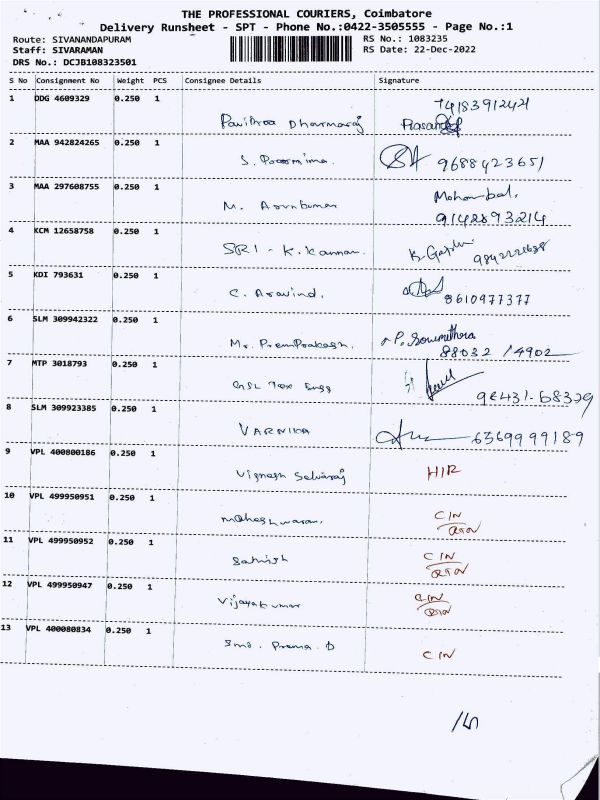 THE PROFESSIONAL COURIERS, Coimbatore
Delivery Runsheet - SPT - Phone No.:0422-3505555 - Page No.:1
Route: SIVANANDAPURAM RS No.: 1083235
Staff: SIVARAMAN RS Date: 22-Dec-2022
DRS No.: DCJB108323501
S No Consignment No Weight PCS Consignee Details Signature
1 DDG 4609329 0.250 1 7418391242
Pavithraa Dharmaraj
2 MAA 942824265 0.250 1
S. Poornima. 9688423651
3 MAA 297608755 0.250 1 Mohanbal.
M. Arunkumar 9142893214
4 KCM 12658758 0.250 1
SRI - K. Kannan.
5 KDI 793631 0.250 1
C. Aravind. 8610977377
6 SLM 309942322 0.250 1 P. Sowmithra
Mr. PremPrakash. 88032 14902
7 MTP 3018793 0.250 1
GSL Tax Engg 96431-68329
8 SLM 309923385 0.250 1
VARNIKA 6369999189
9 VPL 400800186 0.250 1
Vignesh Selvaraj HIR
10 VPL 499950951 0.250 1
Maheshwaran. CIN
RTN
11 VPL 499950952 0.250 1
Sathish CIN
RTN
12 VPL 499950947 0.250 1
Vijayakumar CIN
RTN
13 VPL 400080834 0.250 1
Smt. Prema. D CIN